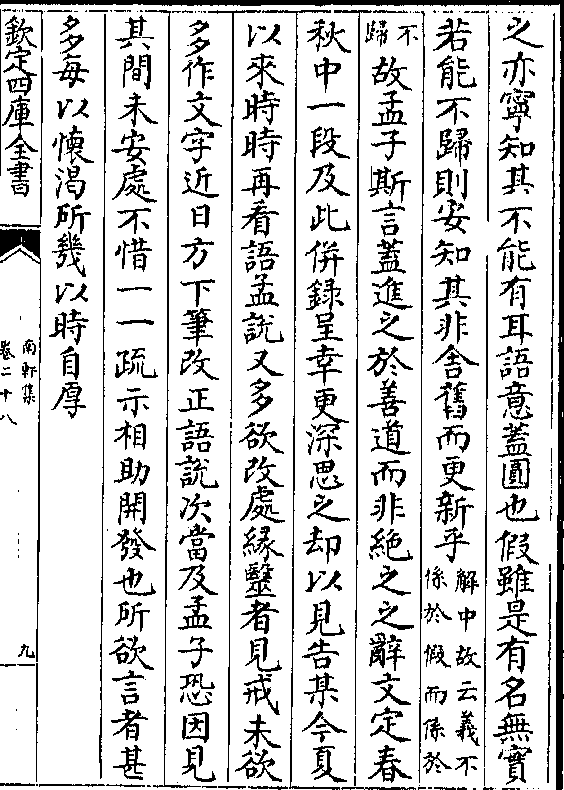 之亦寧知其不能有耳語意蓋圓也假雖是有名無實
若能不歸則安知其非舍舊而更新乎解中故云義不係於假而係於
不歸故孟子斯言蓋進之於善道而非絶之之辭文定春
秋中一段及此併録呈幸更深思之却以見告某今夏
以來時時再看語孟說又多欲改處緣醫者見戒未欲
多作文字近日方下筆改正語說次當及孟子恐因見
其間未安處不惜一一疏示相助開發也所欲言者甚
多每以懷渴所幾以時自厚
欽定四庫全書
南軒集
卷二十八
九